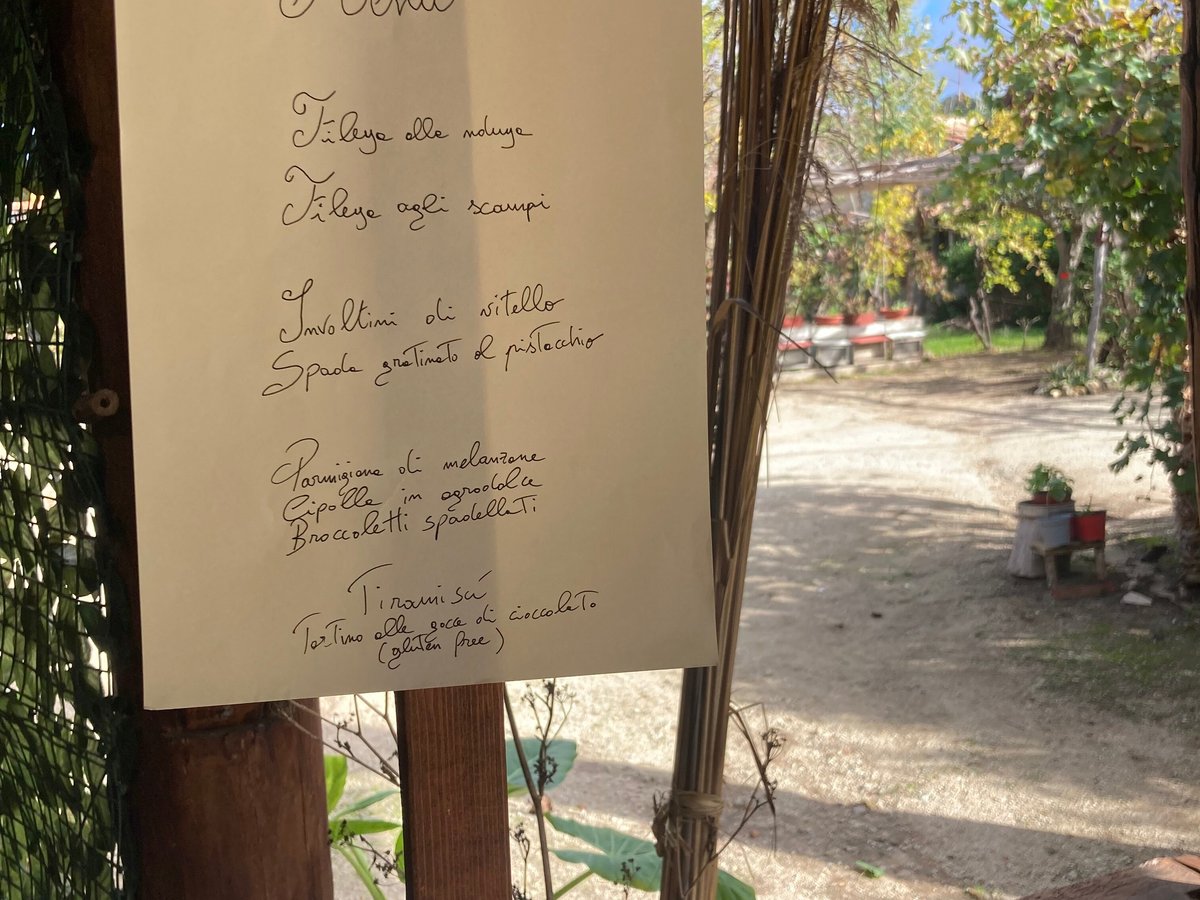 Menù
Fileja alla nduja
Fileja agli scampi
Involtini di vitello
Spada gratinato al pistacchio
Parmigiana di melanzane
Cipolla in agrodolce
Broccoletti spadellati
Tiramisú
Tortino alle gocce di cioccolato
(gluten free)